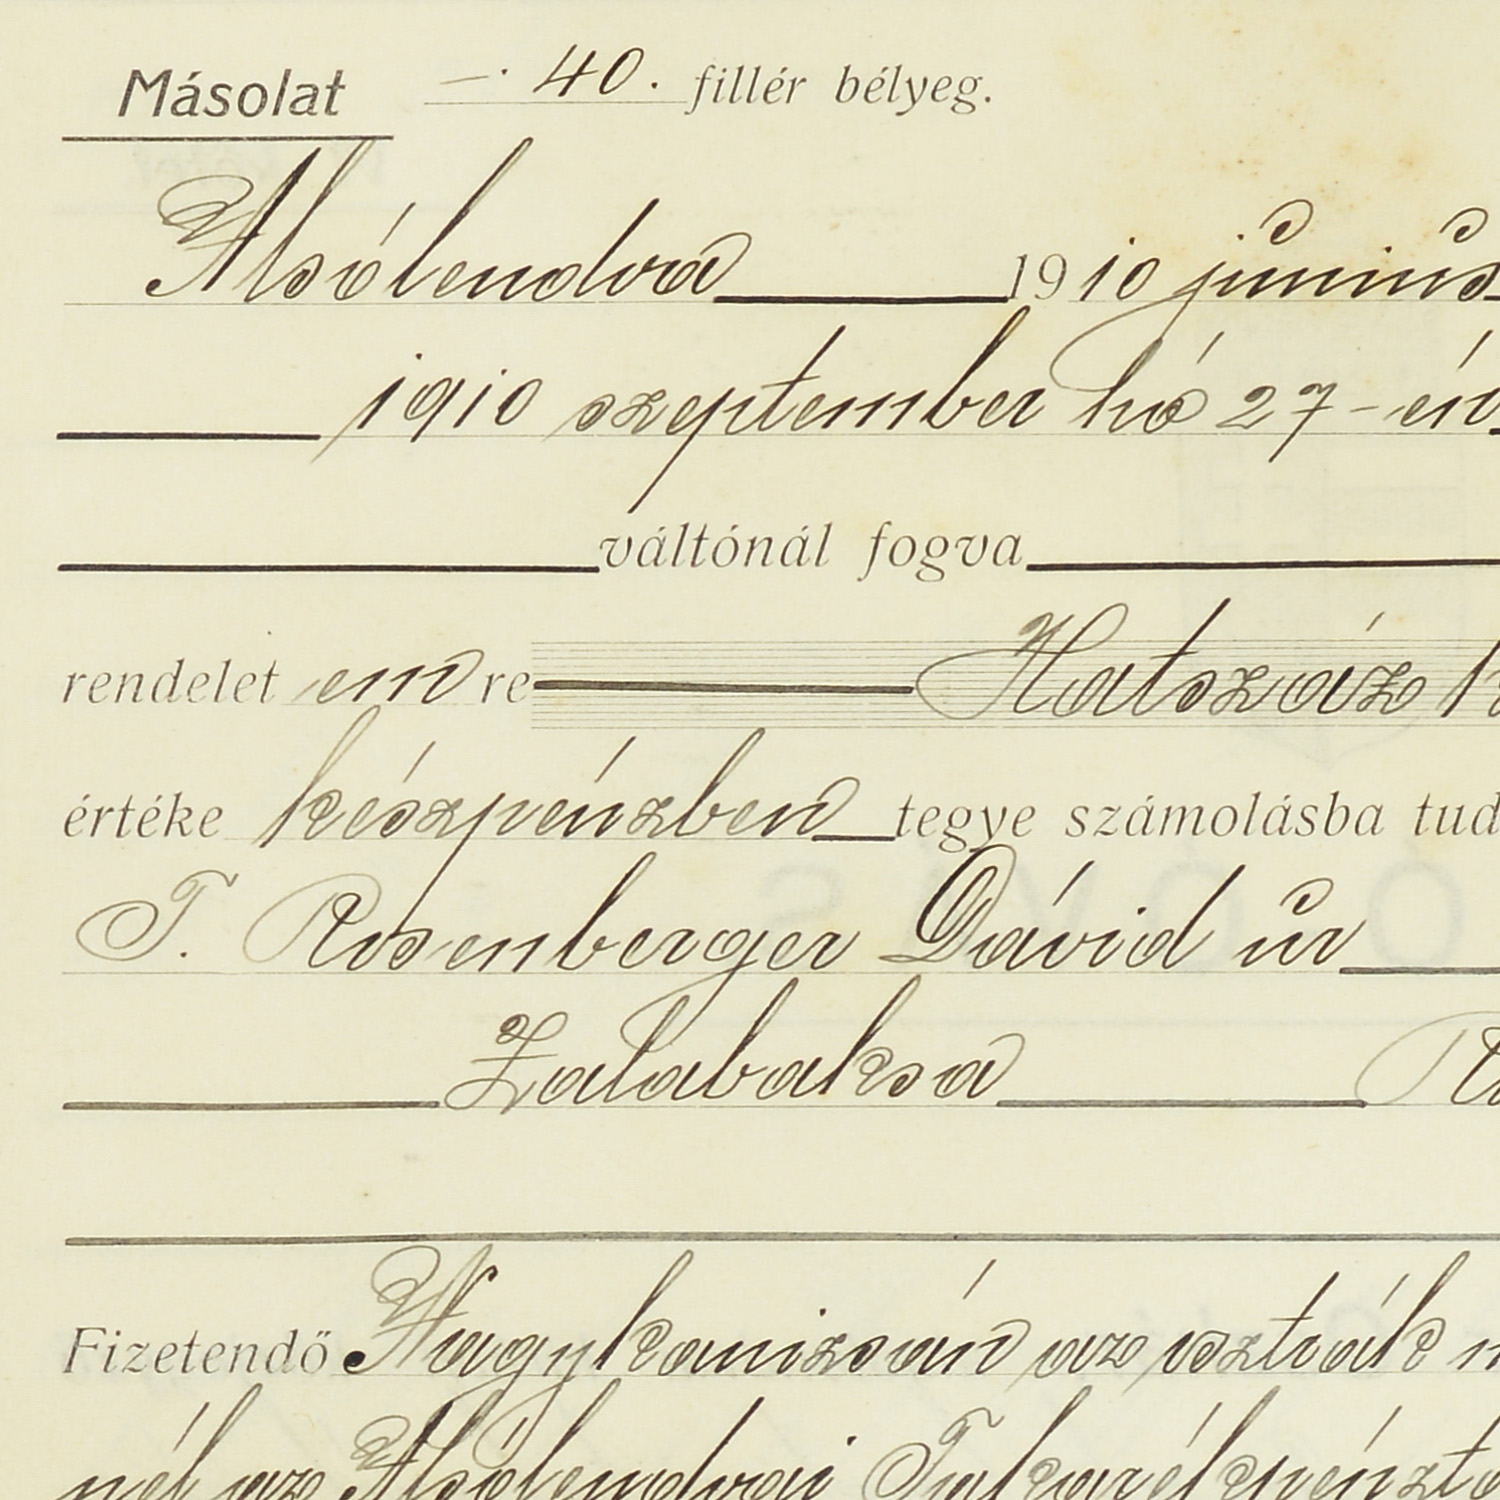 Másolat —. 40. fillér bélyeg.
Alsólendva 1910 junius
1910 szeptember hó 27-én
váltónál fogva
rendelet em re Hatszáz
értéke készpénzben tegye számolásba tud
T. Rosenberger Dávid úr
Zalabaksa
Fizetendő Nagykanizsán az osztrák
nél az Alsólendvai Takarékpénztá